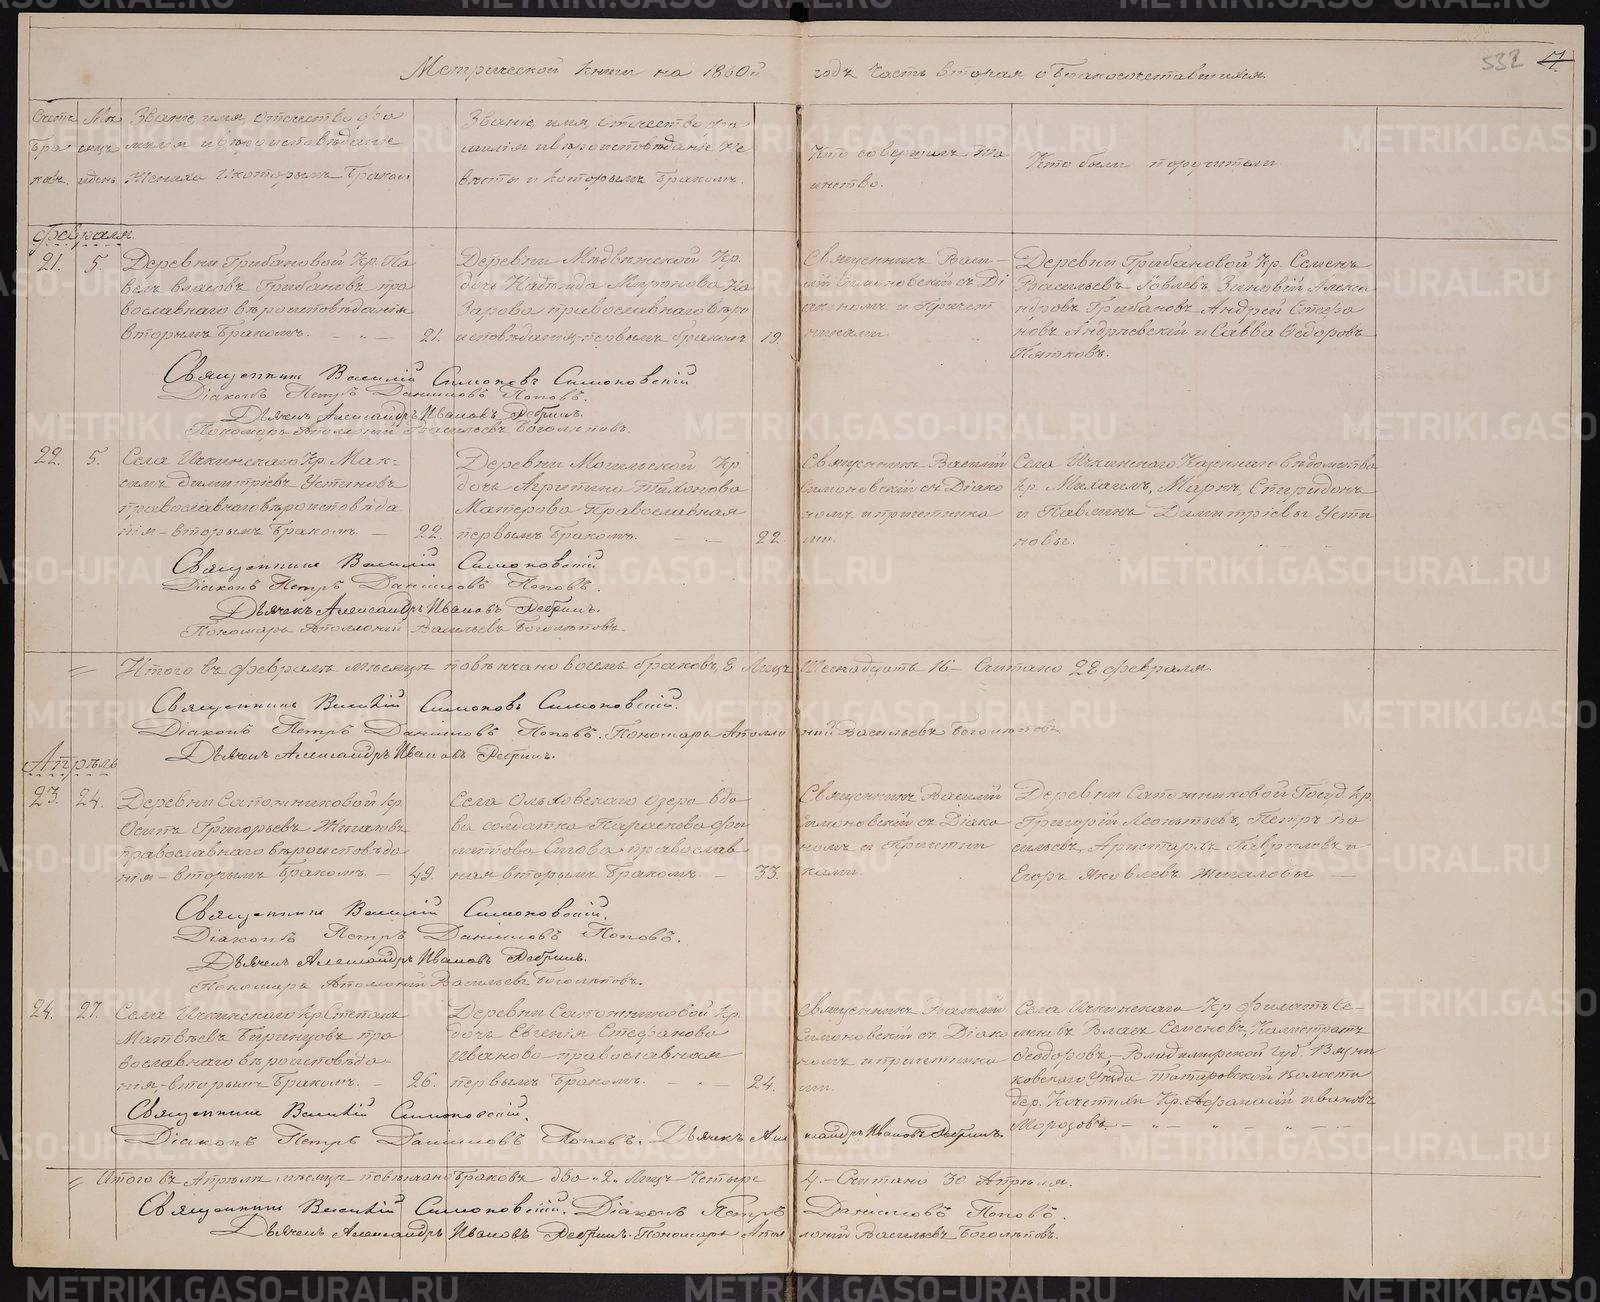 Метрической книги на 1860й годъ часть вторая о бракосочетавшихся.
532
Счетъ браковъ.
Мѣсяцъ и день.
Званіе, имя, отчество, фамилія и вѣроисповѣданіе жениха и которымъ бракомъ.
Званіе, имя, отчество, фамилія и вѣроисповѣданіе невѣсты и которымъ бракомъ.
Кто совершалъ таинство.
Кто были поручители
Февраля.
21.
5.
Деревни Грибановой Кр. Павелъ Власовъ Грибановъ православнаго вѣроисповѣданія вторымъ бракомъ.
21.
Деревни Медвѣжской Кр. дочь Надежда Миронова Назарова православнаго вѣроисповѣданія, первымъ бракомъ
19.
Священникъ Василій Симоновскій съ Діакономъ и Причетниками
Деревни Грибановой Кр. Семенъ
Васильевъ Іовлевъ, Зиновій Алекса
ндровъ Грибановъ, Андрей Стефа
новъ Андріевскій и Савва Ѳедоровъ
Пятковъ.
Священникъ Василій Симоновъ Симоновскій
Діаконъ Петръ Даниловъ Поповъ.
Дьячекъ Александръ Ивановъ Ребринъ.
Пономарь Аполлоній Васильевъ Боголѣповъ.
22.
5.
Села Ичкинскаго Кр. Мак-
симъ Димитріевъ Устиновъ
православнаго вѣроисповѣда
нія – вторымъ бракомъ. –
22.
Деревни Могильской Кр.
дочь Агрипина Тихонова
Матерова православная
первымъ бракомъ.
22
Священникъ Василій
Симоновскій съ Діако
номъ и причетника
ми.
Села Ичкинскаго Казеннаго вѣдомства
Кр. Михаилъ, Маркъ, Спиридонъ
и Павлинъ Димитріевы Усти
новы.
Священникъ Василій Симоновскій
Діаконъ Петръ Даниловъ Поповъ.
Дьячекъ Александръ Ивановъ Ребринъ.
Пономарь Аполлоній Васильевъ Боголѣповъ.
Итого въ февралѣ мѣсяцѣ повѣнчано восемь браковъ, 8 Лицъ Шеснадцать 16 – Считано 28 февраля.
Священникъ Василій Симоновъ Симоновскій.
Діаконъ Петръ Даниловъ Поповъ. Пономарь Аполлоній Васильевъ Боголѣповъ.
Дьячекъ Александръ Ивановъ Ребринъ.
Апрѣль
23.
24.
Деревни Сапожниковой Кр.
Осипъ Григорьевъ Жигаловъ
православнаго вѣроисповѣда
нія – вторымъ бракомъ –
49.
Села Ольховскаго озера вдо
ва солдатка Параскева Фи
липова Сигова православ
ная вторымъ бракомъ –
33.
Священникъ Василій
Симоновскій съ Діако
номъ и Причетни
ками
Деревни Сапожниковой Госуд. Кр.
Григорій Леонтьевъ, Петръ Ва
сильевъ, Аристархъ Гавриловъ и
Егоръ Яковлевъ Жигаловы
Священникъ Василій Симоновскій.
Діаконъ Петръ Даниловъ Поповъ.
Дьячекъ Александръ Ивановъ Ребринъ.
Пономарь Аполлоній Васильевъ Боголѣповъ.
24.
27.
Села Ичкинскаго Кр. Степанъ
Матвѣевъ Бирюцовъ пра
вославнаго вѣроисповѣда
нія – вторымъ бракомъ. –
26.
Деревни Сапожниковой Кр.
дочь Евгенія Стефанова
Иванова православная
первымъ бракомъ.
24.
Священникъ Василій
Симоновскій съ Діако
номъ и причетника
ми.
Села Ичкинскаго Кр. Филатъ Се-
меновъ, Власъ Семеновъ, Калистратъ
Ѳеодоровъ, – Владимирской Губ. Вязни
ковскаго Уѣзда Татаровской Волости
дер. Кочетихи Кр. Аѳанасій Ивановъ
Морозовъ.
Священникъ Василій Симоновскій.
Діаконъ Петръ Даниловъ Поповъ. Дьячекъ Александръ Ивановъ Ребринъ.
Итого въ Апрѣлѣ мѣсяцѣ повѣнчано браковъ два „2„ Лицъ Четыре 4. – Считано 30 Апрѣля.
Священникъ Василій Симоновскій. Діаконъ Петръ Даниловъ Поповъ.
Дьячекъ Александръ Ивановъ Ребринъ. Пономарь Аполлоній Васильевъ Боголѣповъ.
METRIKI.GASO-URAL.RU